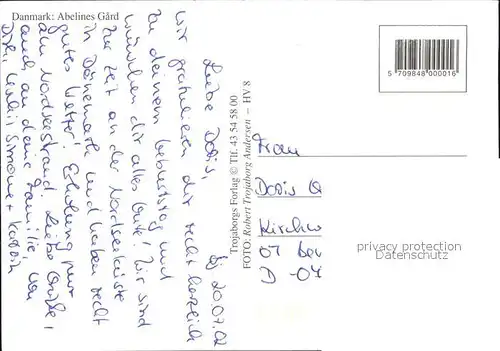 Danmark: Abelines Gård
Dj 20.07.02
Liebe Doris,
wir gratulieren dir recht herzlich
zu deinem Geburtstag und
wünschen dir alles Gute! Wir sind
zur Zeit an der Nordseeküste
in Dänemark und haben recht
gutes Wetter! Erholung pur
am Nordseestrand. Liebe Grüße,
auch an deine Familie, von
Simone + Katrin
Trojaborgs Forlag © Tlf. 43 54 58 00
FOTO: Robert Trojaborg Andersen – HV 8
5 709848 000016
Frau
Doris
Kirchw
07
D -04
privacy protection
VendorID